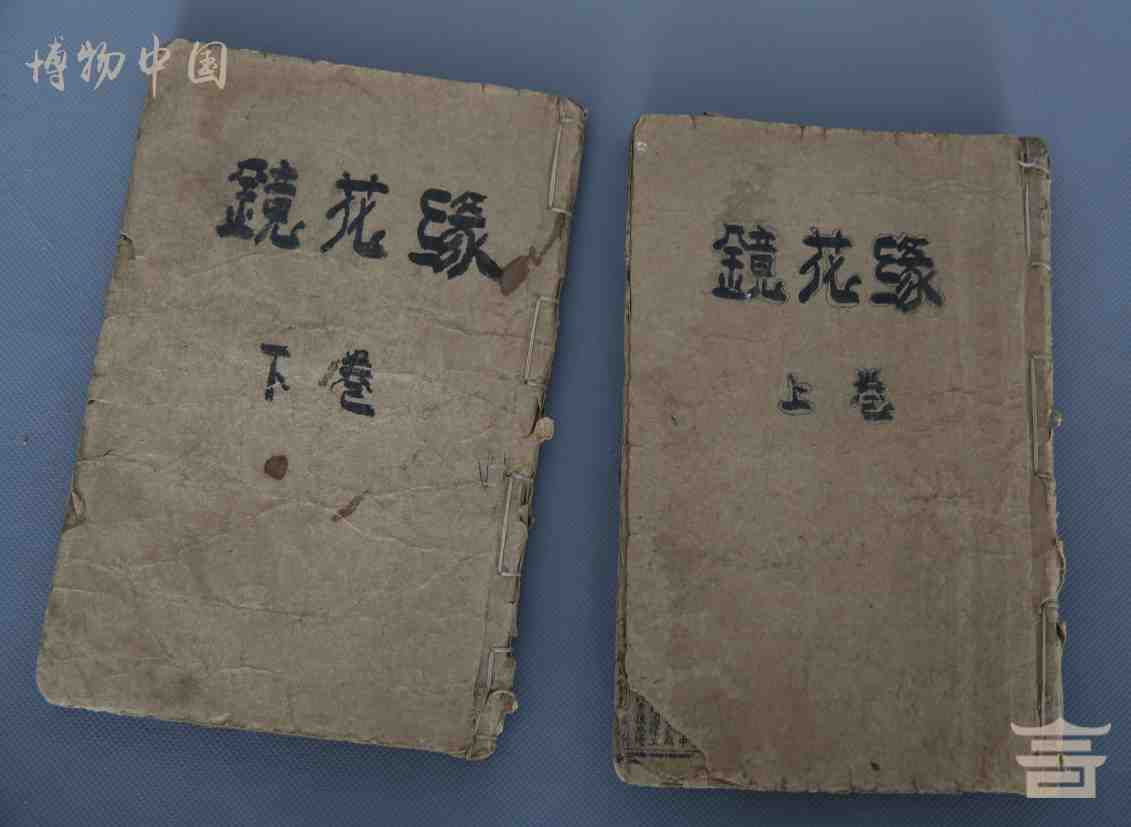 博物中国
鏡花缘
下卷
鏡花缘
上卷